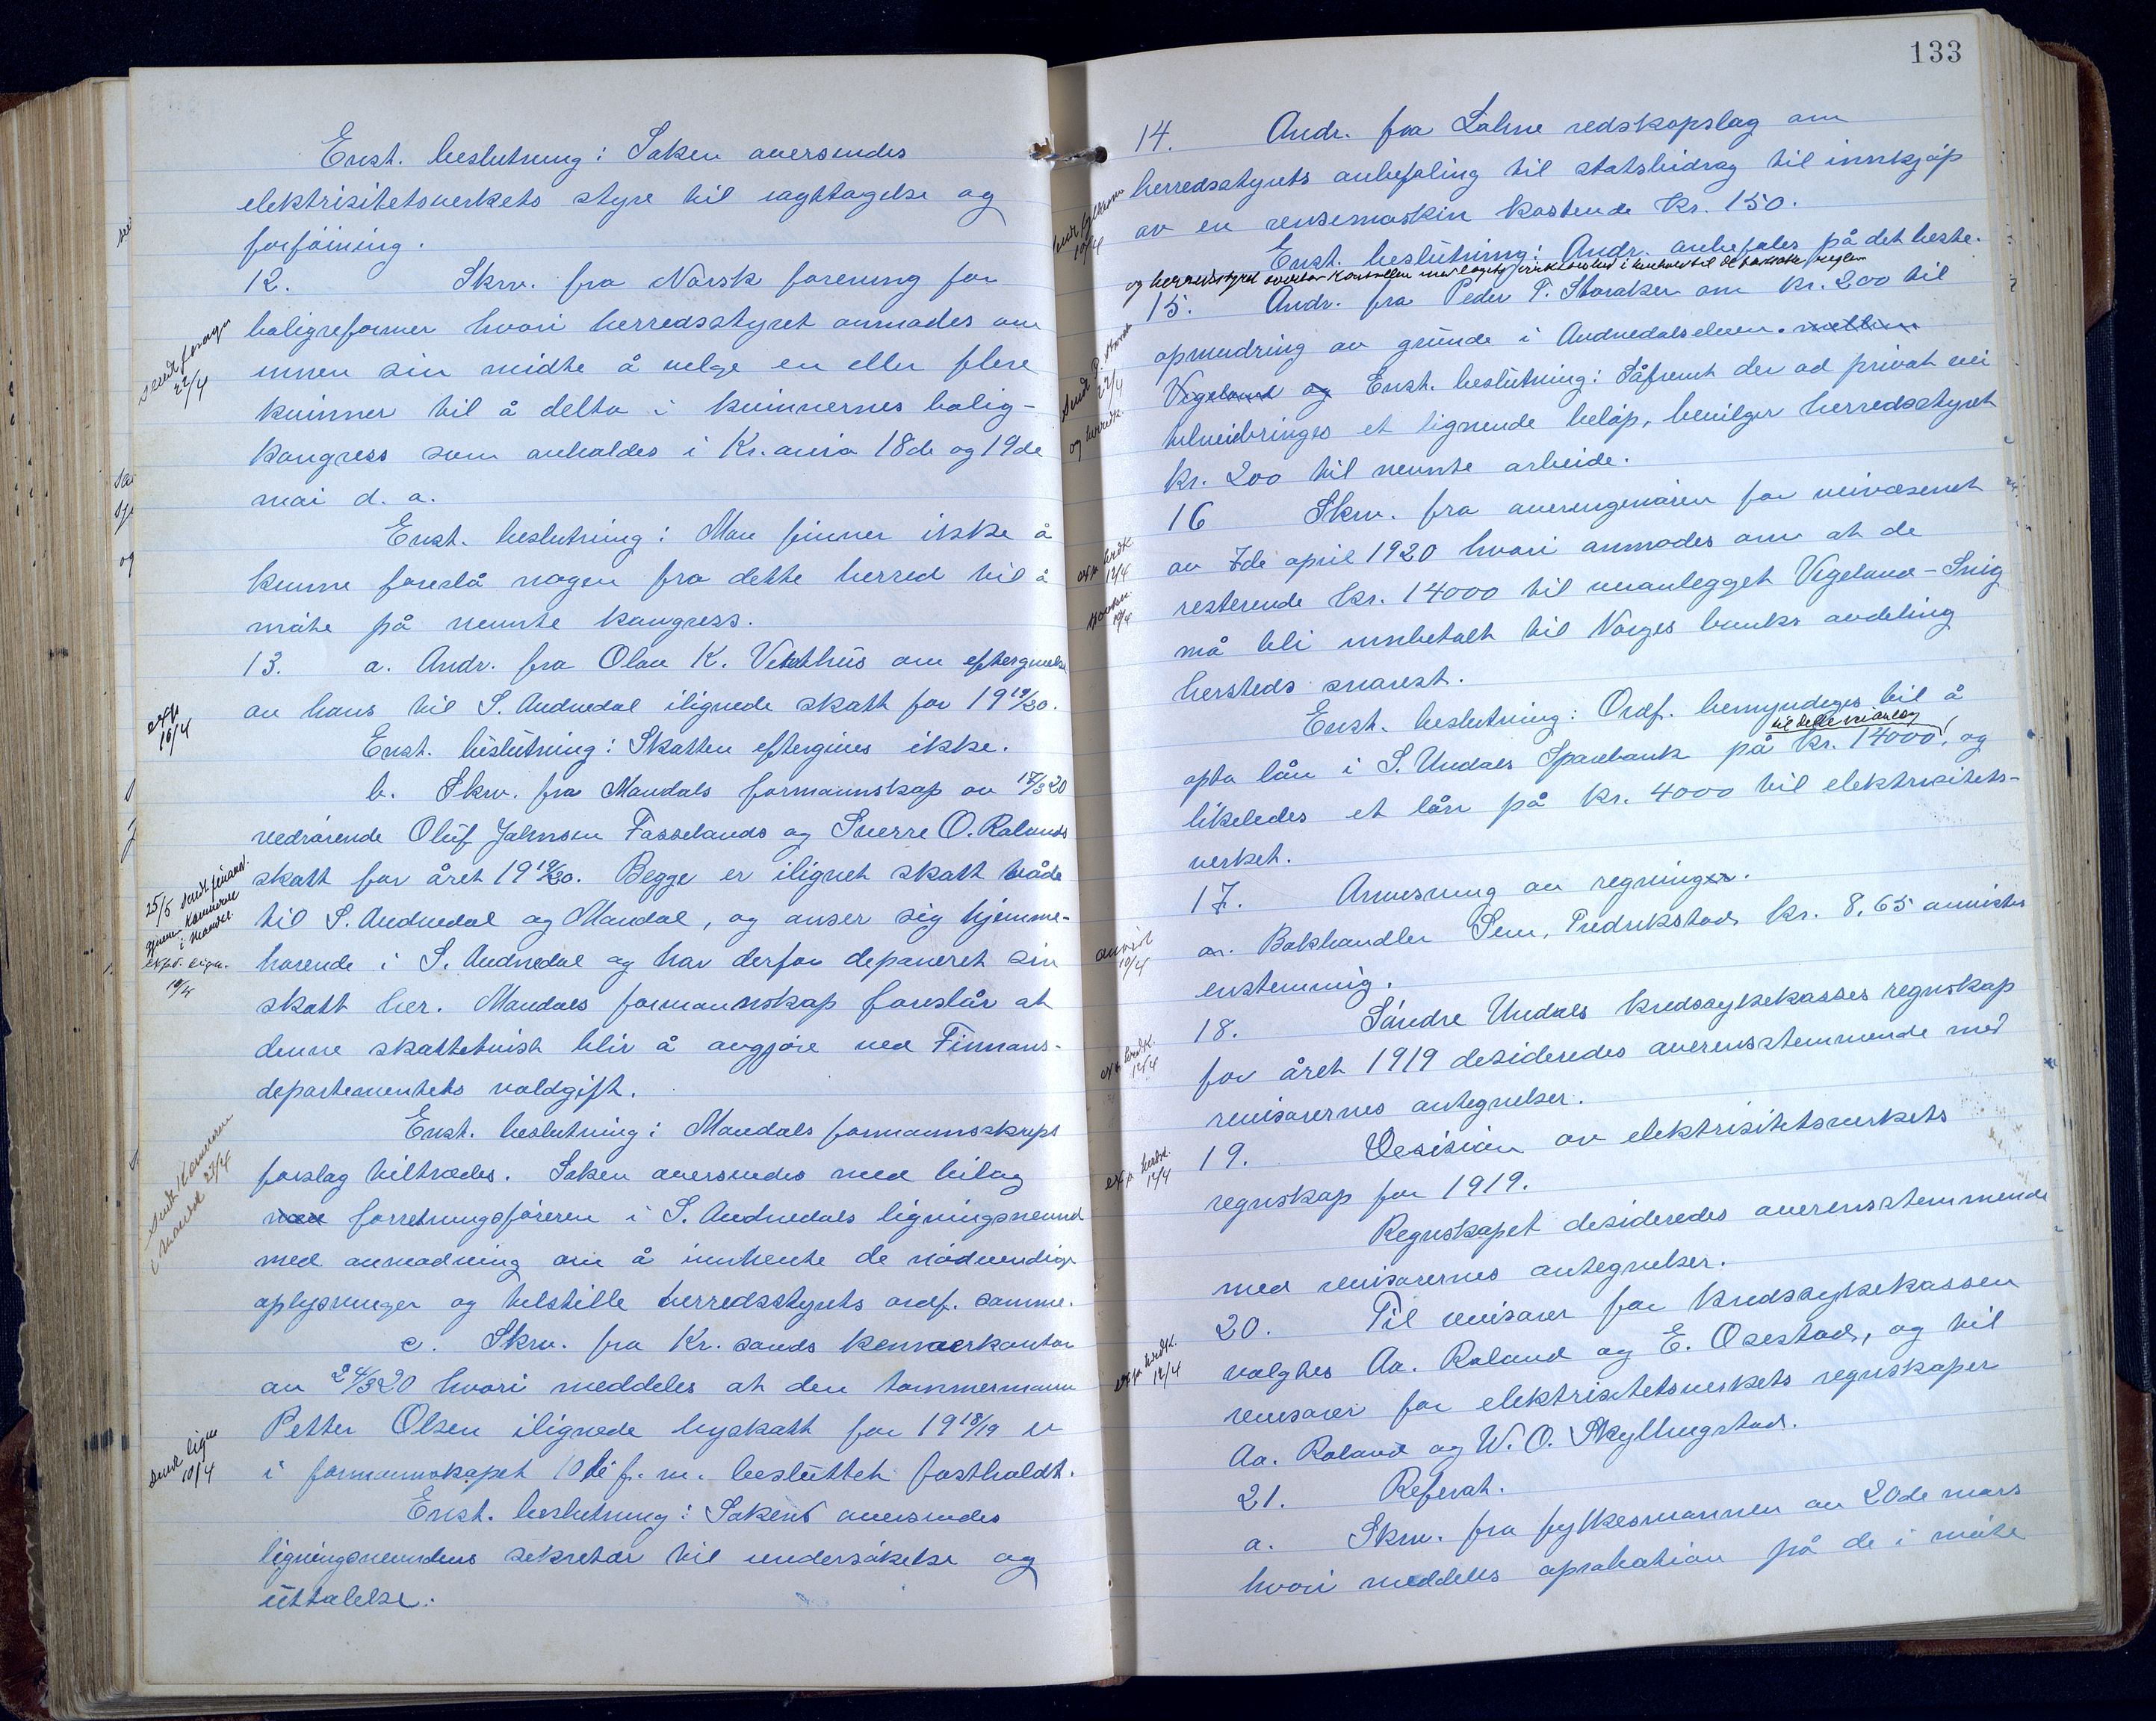 Enst. beslutning: Saken oversendes
elektrisitetsverkets styre til iagttagelse og
forföining.
12. Skrv. fra Norsk forening for
boligreformer hvori herredsstyret anmodes om
innen sin midte å velge en eller flere
kvinner til å delta i kvinnernes bolig-
kongress som avholdes i Kr.ania 18de og 19de
mai d. a.
Enst. beslutning: Man finner ikke å
kunne foreslå nogen fra dette herred til å
möte på nevnte kongress.
13. a. Andr. fra Olav K. Vetrhus om eftergivelse
av hans til S. Audnedal ilignede skatt for 19 19/20.
Enst. beslutning: Skatten eftergives ikke.
b. Skrv. fra Mandals formannskap av 17/3 20
vedrörende Oluf Jalmsen Fasselands og Sverre O. Rolands
skatt for året 19 19/20. Begge er ilignet skatt både
til S. Audnedal og Mandal, og anser sig hjemme-
hörende i S. Audnedal og har derfor deponeret sin
skatt her. Mandals formannskap foreslår at
denne skattetvist blir å avgjöre ved Finnans-
departementets voldgift.
Enst. beslutning: Mandals formannsskaps
forslag tiltrædes. Saken oversendes med bilag
med forretningsföreren i S. Audnedals ligningsnevnd
med anmodning om å innhente de nödvendige
oplysninger og tilstille herredsstyrets ordf. samme.
c. Skrv. fra Kr. sands kemnerkontor
av 24/3 20 hvori meddeles at den tömmermann
Petter Olsen ilignede byskatt for 19 18/19 er
i formannskapet 10de f. m. besluttet fastholdt.
Enst. beslutning: Saken oversendes
ligningsnevndens sekretær til undersökelse og
uttalelse.
22/4
exp.
16/4
25/5 sendt finansd.
gjennem Kemneren
i Mandal.
10/4
Sendt Kemneren
i Mandal 23/4
sendt lign
10/4
133
14. Andr. fra Lohne redskapslag om
herredsstyrets anbefaling til statsbidrag til innkjöp
av en rensemaskin kostende kr. 150.
Enst. beslutning: Andr. anbefales på det beste.
og herredsstyret overtar kontrollen med lagets virksomhet i henhold til de fastsatte regler
15. Andr. fra Peder T. Storaker om kr. 200 til
opmudring av grunde i Audnedalselven. mellem
Vigeland og Enst. beslutning: Såfremt der ad privat vei
tilveiebringes et lignende belöp, bevilger herredsstyret
kr. 200 til nevnte arbeide.
16 Skrv. fra overingeniören for veivæsenet
av 7de april 1920 hvori anmodes om at de
resterende kr. 14000 til veianlegget Vigeland-Snig
må bli innbetalt til Norges banks avdeling
hersteds snarest.
Enst. beslutning: Ordf. bemyndiges til å
til dette veianlæg
opta lån i S. Undals Sparebank på kr. 14000, og
likeledes et lån på kr. 4000 til elektrisitets-
verket.
17. Anvisning av regninger.
a. Bokhandler Sem, Fredrikstad kr. 8,65 anvistes
enstemmig.
18. Söndre Undals kredssykekasses regnskap
for året 1919 desideredes overensstemmende med
revisorernes antegnelser.
19. Desision av elektrisitetsverkets
regnskap for 1919.
Regnskapet desideredes overensstemmende
med revisorernes antegnelser.
20. Til revisorer for kredssykekassen
valgtes Aa. Roland og E. Osestad, og til
revisorer for elektrisitetsverkets regnskaper
Aa. Roland og W. O. Skyllingstad.
21. Referat.
a. Skrv. fra fylkesmannen av 20de mars
hvori meddeles aprobation på de i möte
10/4
Sendt P. Storak
22/4
og herredsk.
exp. herdk.
12/4
10/4
anvist
10/4
12/4
exp. herdsk.
12/4
exp. herdk.
12/4